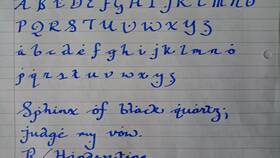 A B C D E F G H I J K L M N O
P Q R S T U V W X Y Z
a b c d e f g h i j k l m n o
p q r s t u v w x y z
Sphinx of black quartz;
judge my vow.
R / Handwriting